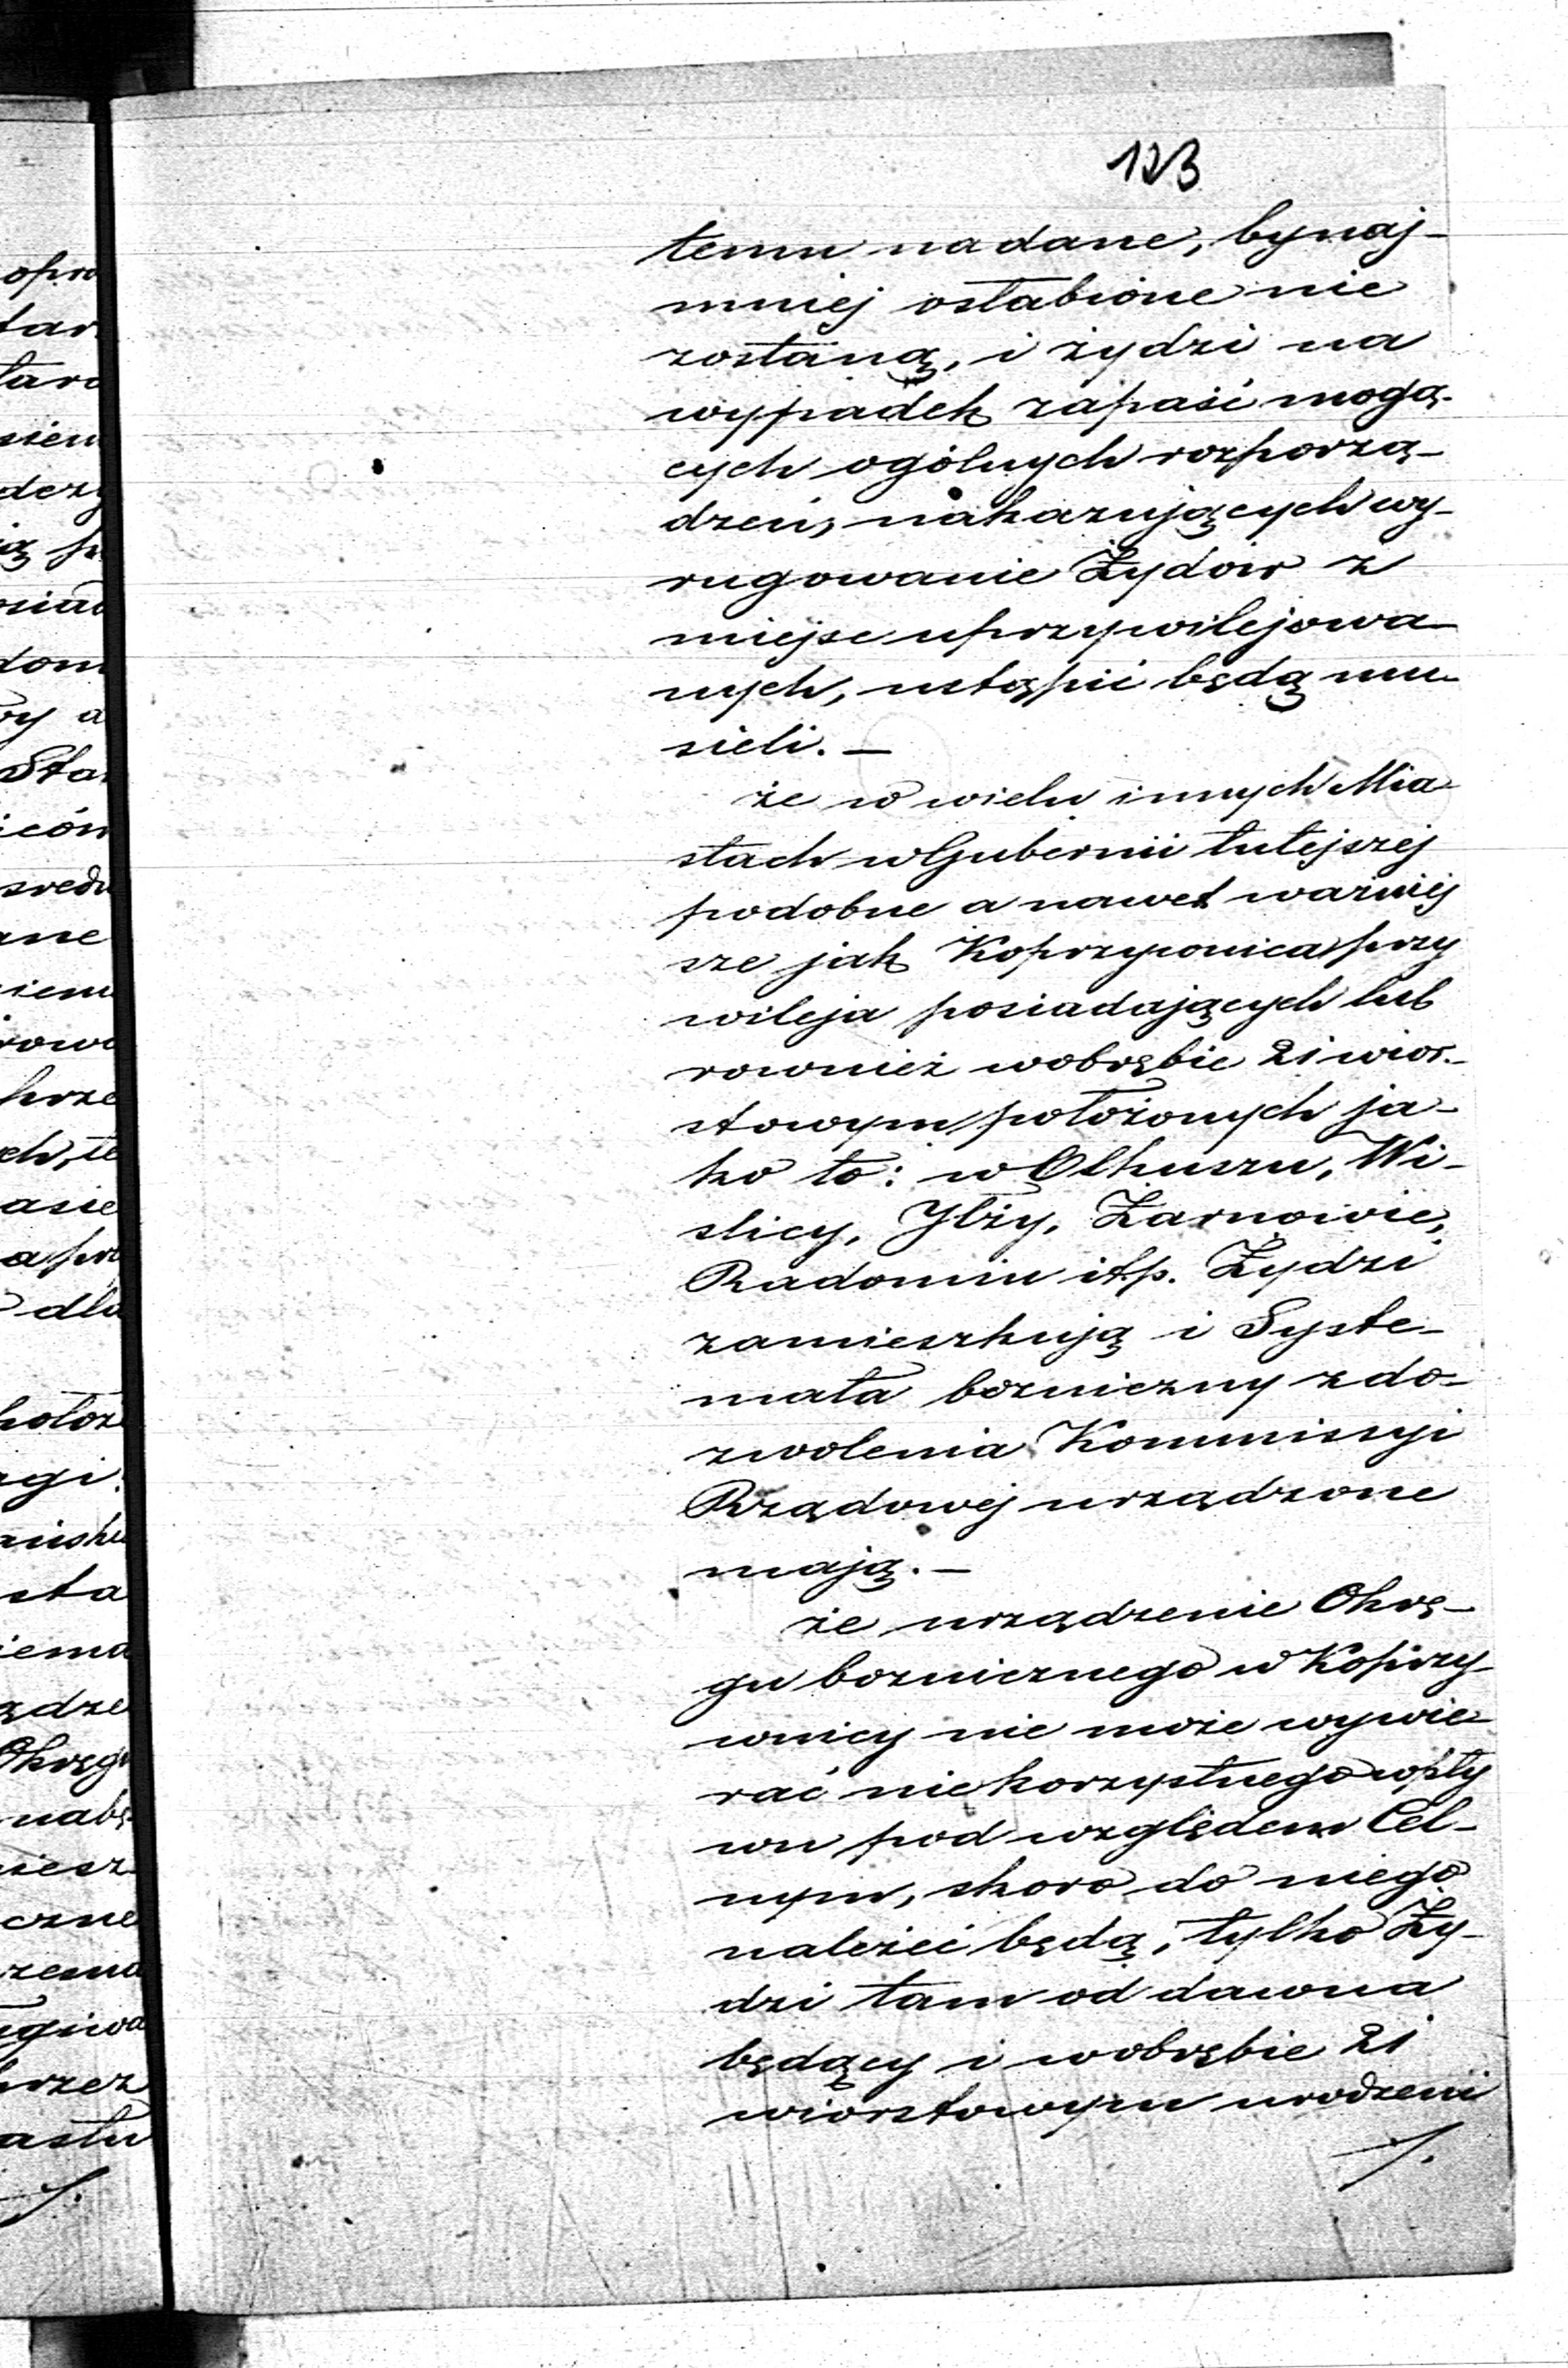 123
temu nadane, bynaj-
mniej osłabione nie
zostaną, i żydzi na
wypadek zapaść mogą-
cych ogólnych rozporzą-
dzeń, nakazujących wy-
rugowanie Żydów z
miejsc uprzywilejowa-
nych, ustąpić będą mu-
sieli. —
że w wielu innych Mia-
stach w Gubernii tutejszej
podobne a nawet ważniej
sze jak Koprzywnica przy
wileja posiadających lub
rownież wobrębie 21 wior-
stowym położonych ja-
ko to: w Olkuszu, Wi-
slicy, Iłży, Żarnowie,
Radomiu itp. Żydzi
zamieszkują i Syste-
mata bozniczny z do-
zwolenia Kommissyi
Rządowej urządzone
mają. —
że urządzenie Okrę-
gu bozniczego w Koprzy-
wnicy nie może wywie-
rać niekorzystnego wpły
wu pod względem Cel-
nym, skoro do niego
należeć będą, tylko Ży-
dzi tam od dawna
będący i wobrębie 21
wiorstowym urodzeni